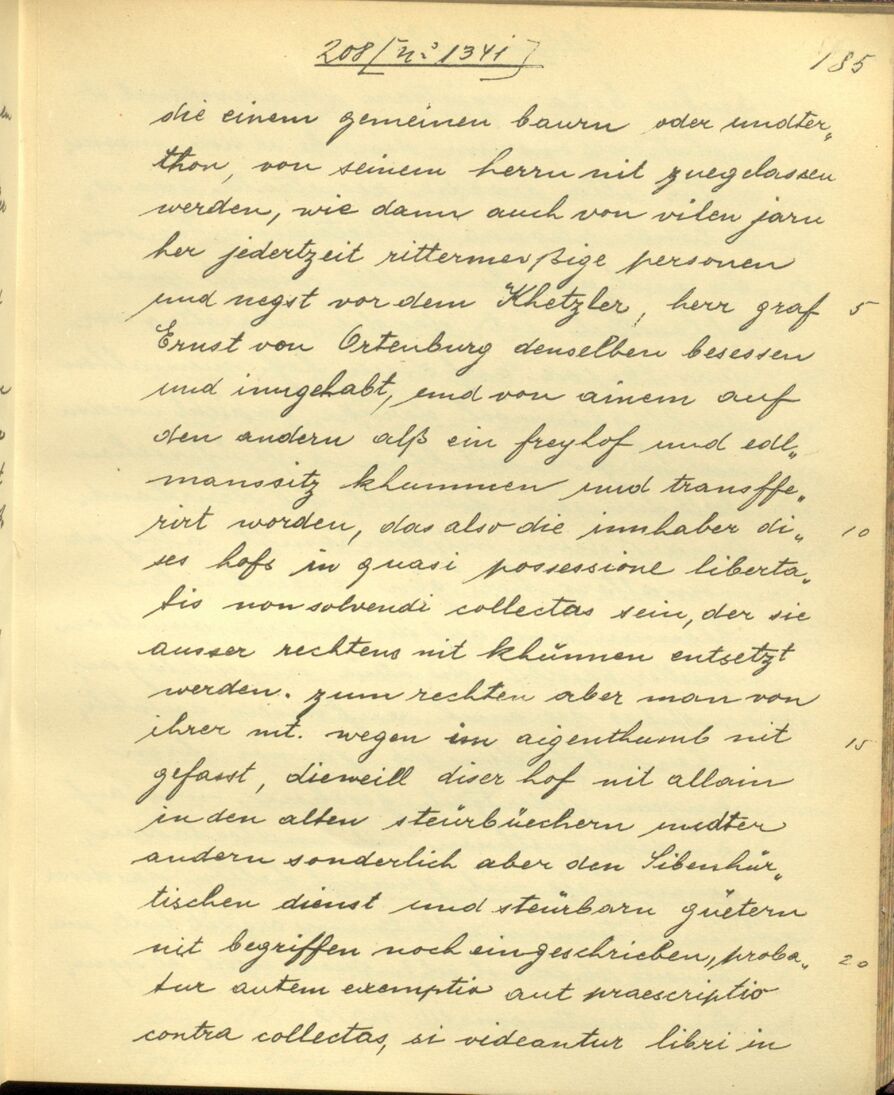 208 [nº 1341]
185
die einem gemeinen baurn oder undter„
thon, von seinem herrn nit zuegelassen
werden, wie dann auch von vilen jarn
her jedertzeit rittermeßige personen
und negst vor dem Khetzler, herr graf 5
Ernst von Ortenburg denselben besessen
und inngehabt, und von ainem auf
den andern alß ein freyhof und edl„
manssitz khummen und transffe„
rirt worden, das also die innhaber di„ 10
ses hofs in quasi possessione liberta„
tis non solvendi collectas sein, der sie
ausser rechtens nit khünnen entsetzt
werden. zum rechten aber man von
ihrer mt. wegen im aigenthumb nit 15
gefasst, dieweill diser hof nit allain
in den alten steürbüechern undter
andern sonderlich aber den Sibenhür„
tischen dienst und steürbarn güetern
nit begriffen noch eingeschrieben, proba„ 20
tur autem exemptio aut praescriptio
contra collectas, si videantur libri in